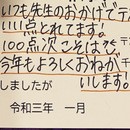 いつも先生のおかげでテ
111点とれてます!
100点次こそはで
今年もよろしくおねが
いします!
しましたが
令和三年 一月